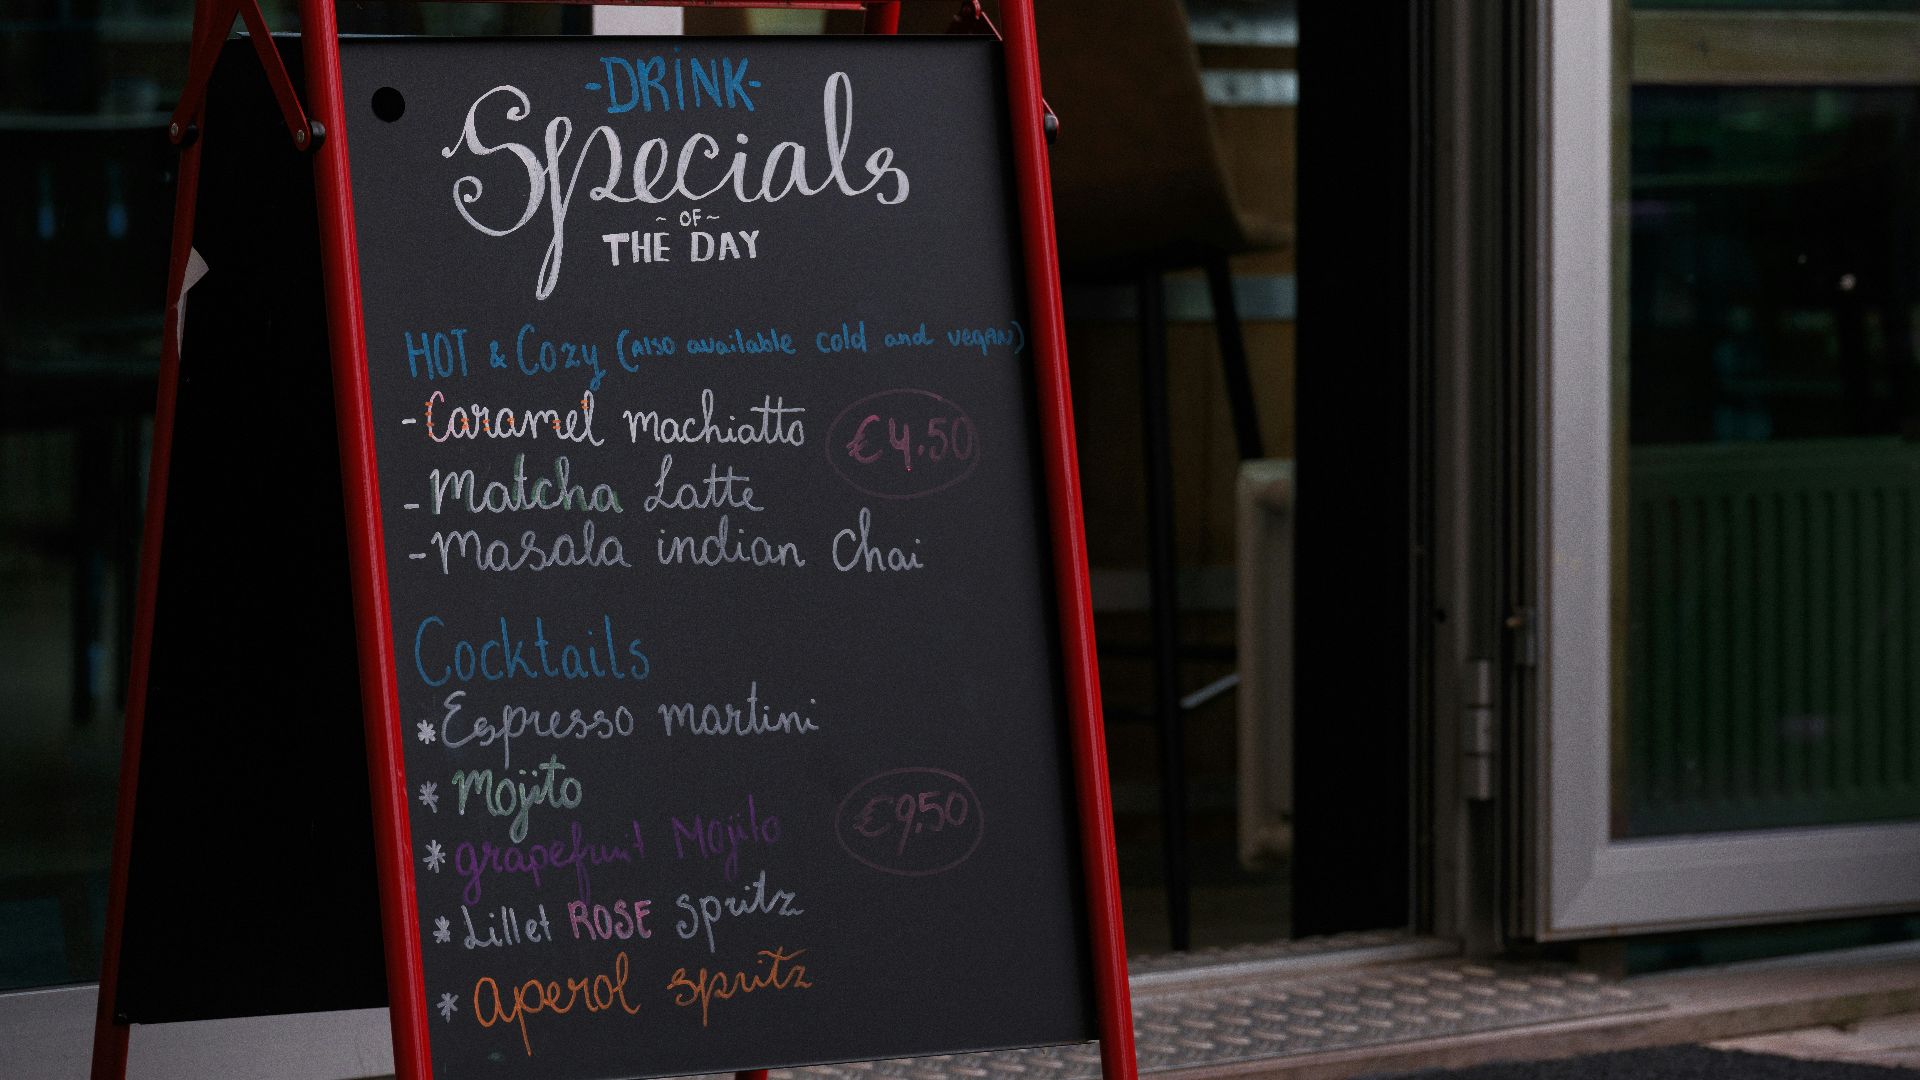 -DRINK-
Specials
~ OF ~
THE DAY
HOT & Cozy (Also available cold and vegan)
- Caramel machiatto
€4.50
- Matcha Latte
- Masala indian Chai
Cocktails
* Espresso martini
* Mojito
* grapefruit Mojito
€9,50
* Lillet ROSE spritz
* aperol spritz